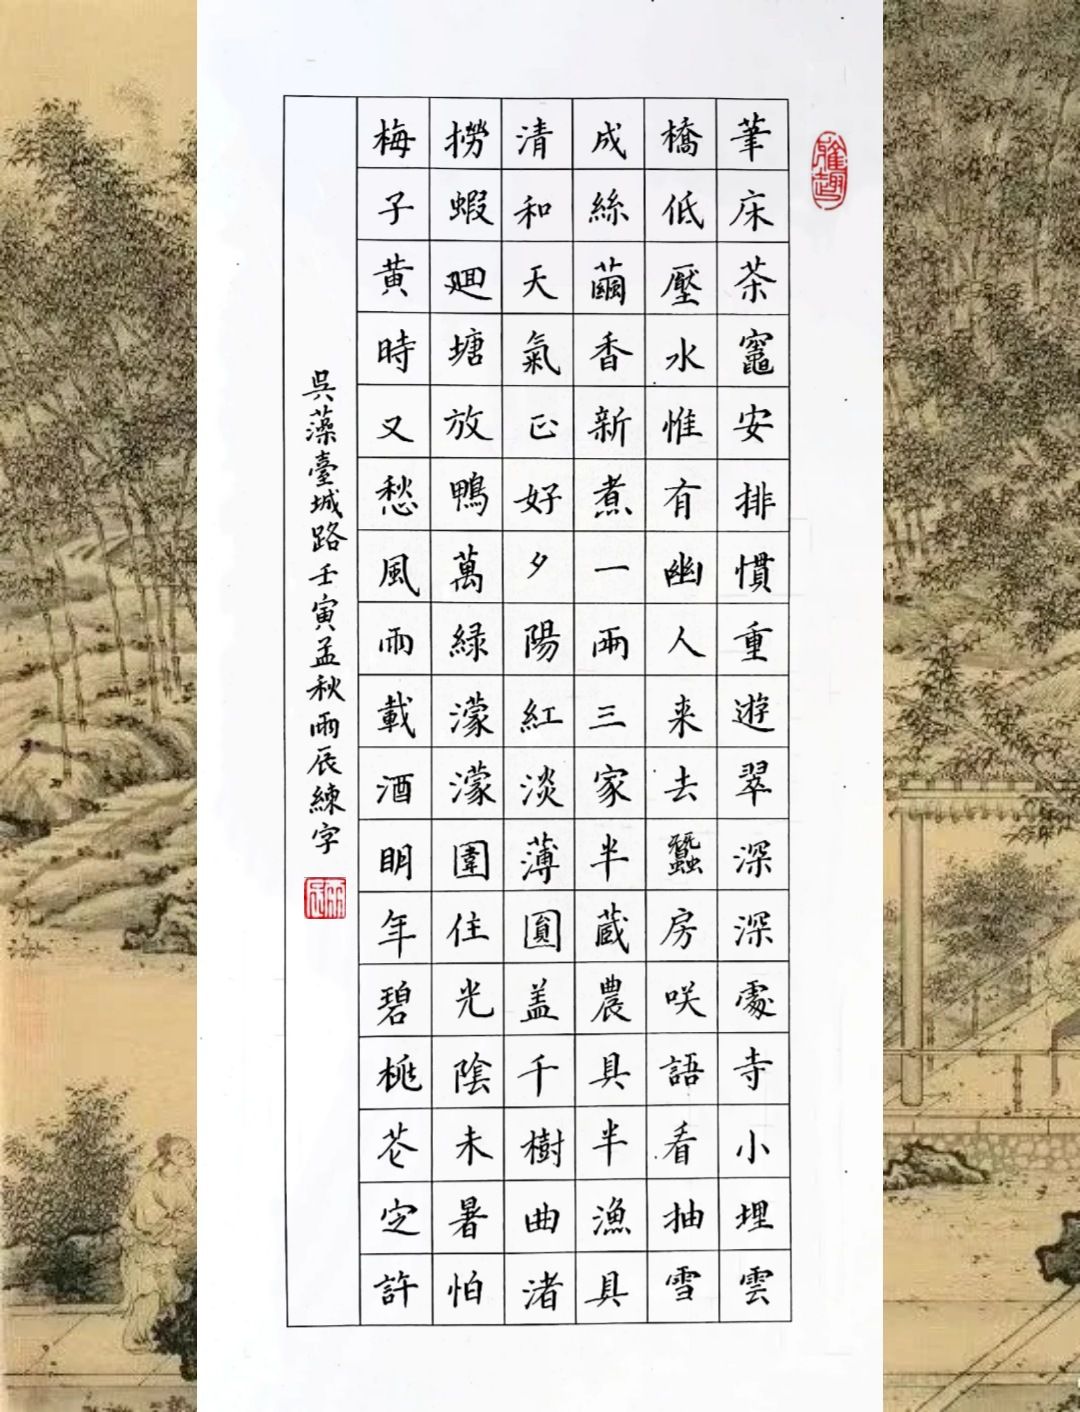 雅趣
筆床茶竈安排慣重遊翠深深處寺小埋雲
橋低壓水惟有幽人来去蠶房咲語看抽雪
成絲繭香新煮一兩三家半蔵農具半漁具
清和天氣正好夕陽紅淡薄圓盖千樹曲渚
撈蝦廻塘放鴨萬緑濛濛圍住光陰未暑怕
梅子黄時又愁風雨載酒明年碧桃花定許
吳藻臺城路壬寅孟秋雨辰練字
雨辰